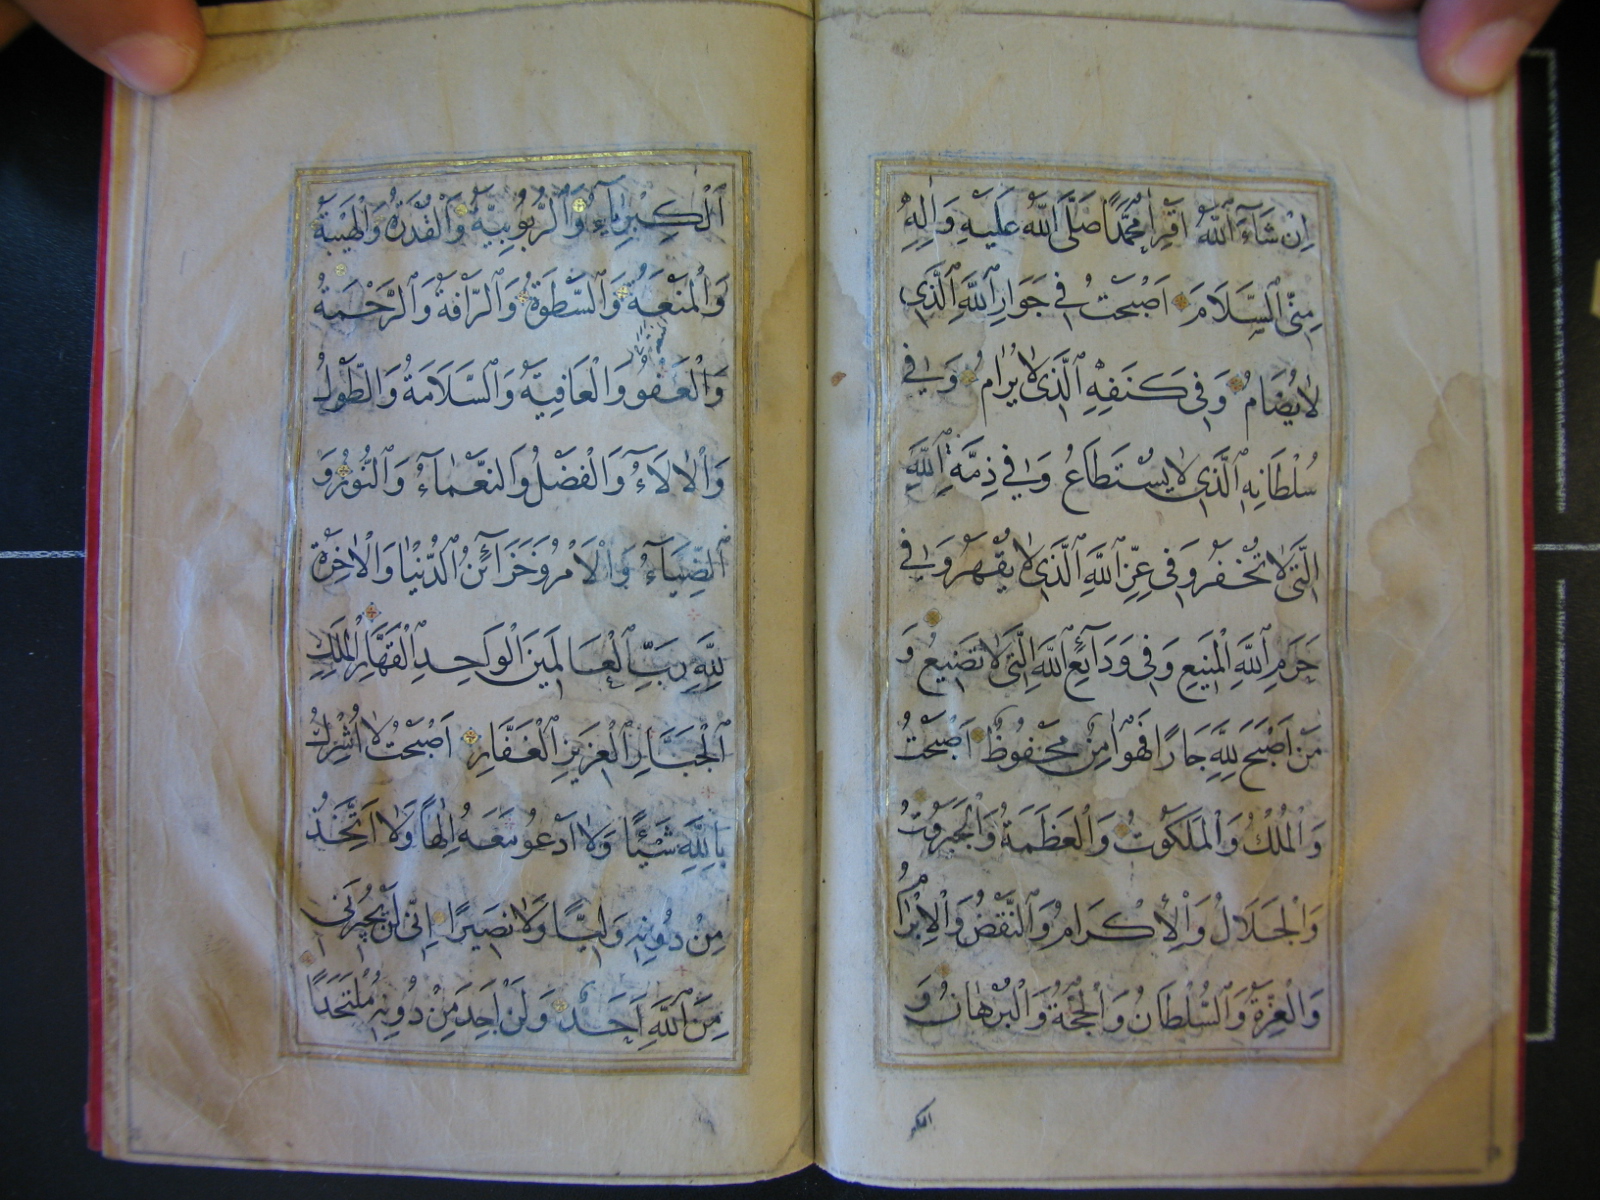 اِنْ شَآءَ اللّٰهُ اَقْرِاْ مُحَمَّدًا صَلَّى اللّٰهُ عَلَيْهِ وَاٰلِهٖ
مِنِّى السَّلَامَ اَصْبَحْتُ فِى جَوَارِ اللّٰهِ الَّذِى
لَا يُضَامُ وَفِى كَنَفِهِ الَّذِى لَا يُرَامُ وَفِى
سُلْطَانِهِ الَّذِى لَا يُسْتَطَاعُ وَفِى ذِمَّةِ اللّٰهِ
الَّتِى لَا تُخْفَرُ وَفِى عِزِّ اللّٰهِ الَّذِى لَا يُقْهَرُ وَفِى
حَرَمِ اللّٰهِ الْمَنِيعِ وَفِى وَدَآئِعِ اللّٰهِ الَّتِى لَا تَضِيعُ وَ
مَنْ اَصْبَحَ لِلّٰهِ جَارًا فَهُوَ اٰمِنٌ مَحْفُوظٌ اَصْبَحْتُ
وَالْمُلْكُ وَالْمَلَكُوتُ وَالْعَظَمَةُ وَالْجَبَرُوتُ
وَالْجَلَالُ وَالْاِكْرَامُ وَالنَّقْضُ وَالْاِبْرَامُ
وَالْعِزَّةُ وَالسُّلْطَانُ وَالْحُجَّةُ وَالْبُرْهَانُ وَ
الكبر
الْكِبْرِيَآءُ وَالرُّبُوبِيَّةُ وَالْقُدْرَةُ وَالْهَيْبَةُ
وَالْمَنَعَةُ وَالسَّطْوَةُ وَالرَّاْفَةُ وَالرَّحْمَةُ
وَالْعَفْوُ وَالْعَافِيَةُ وَالسَّلَامَةُ وَالطَّوْلُ
وَالْاٰلَآءُ وَالْفَضْلُ وَالنَّعْمَآءُ وَالنُّورُ وَ
الضِّيَآءُ وَالْاَمْرُ وَخَزَآئِنُ الدُّنْيَا وَالْاٰخِرَةِ
لِلّٰهِ رَبِّ الْعَالَمِينَ الْوَاحِدِ الْقَهَّارِ الْمَلِكِ
الْجَبَّارِ الْعَزِيزِ الْغَفَّارِ اَصْبَحْتُ لَا اُشْرِكُ
بِاللّٰهِ شَيْئًا وَلَا اَدْعُو مَعَهُ اِلٰهًا وَلَا اَتَّخِذُ
مِنْ دُونِهِ وَلِيًّا وَلَا نَصِيرًا اِنِّى لَنْ يُجِيرَنِى
مِنَ اللّٰهِ اَحَدٌ وَلَنْ اَجِدَ مِنْ دُونِهِ مُلْتَحَدًا